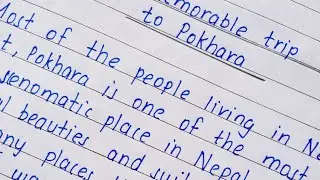 emorable trip
to Pokhara
Most of the people living in Ne
t, Pokhara is one of the most
enomatic place in Nepal
l beauties and
any places